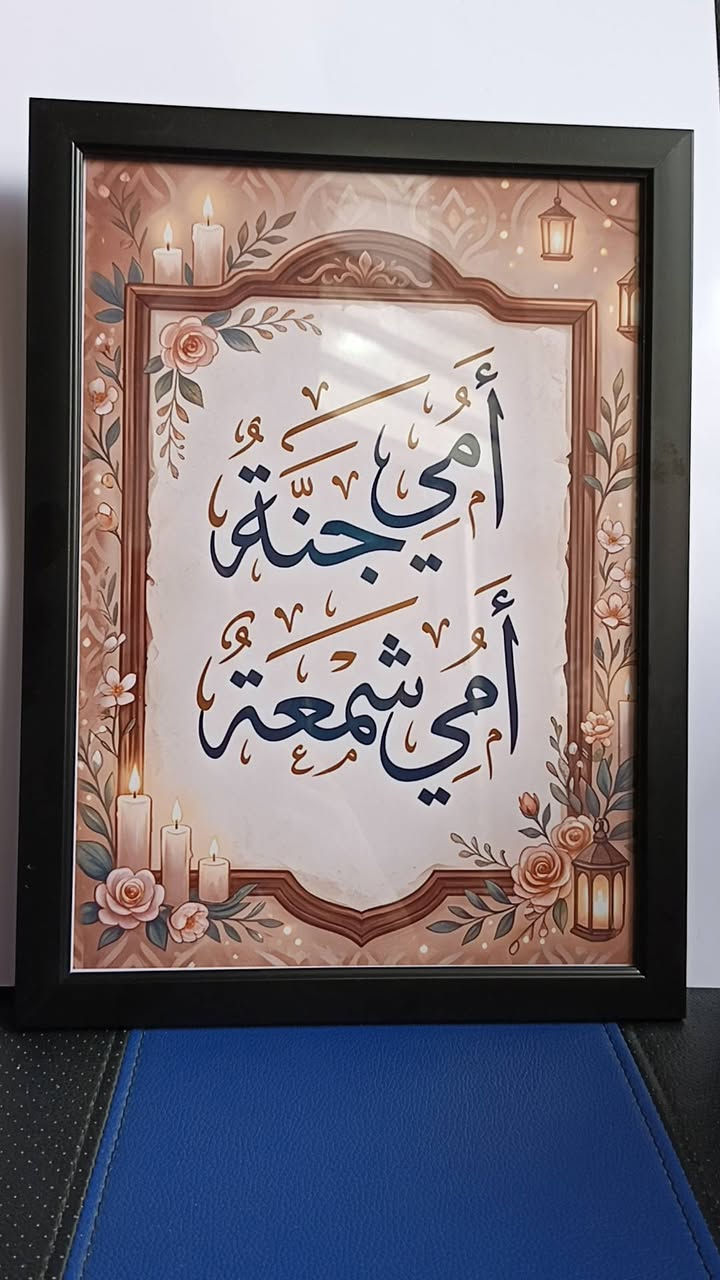 أُمِّي جَنَّةٌ
أُمِّي شَمْعَةٌ